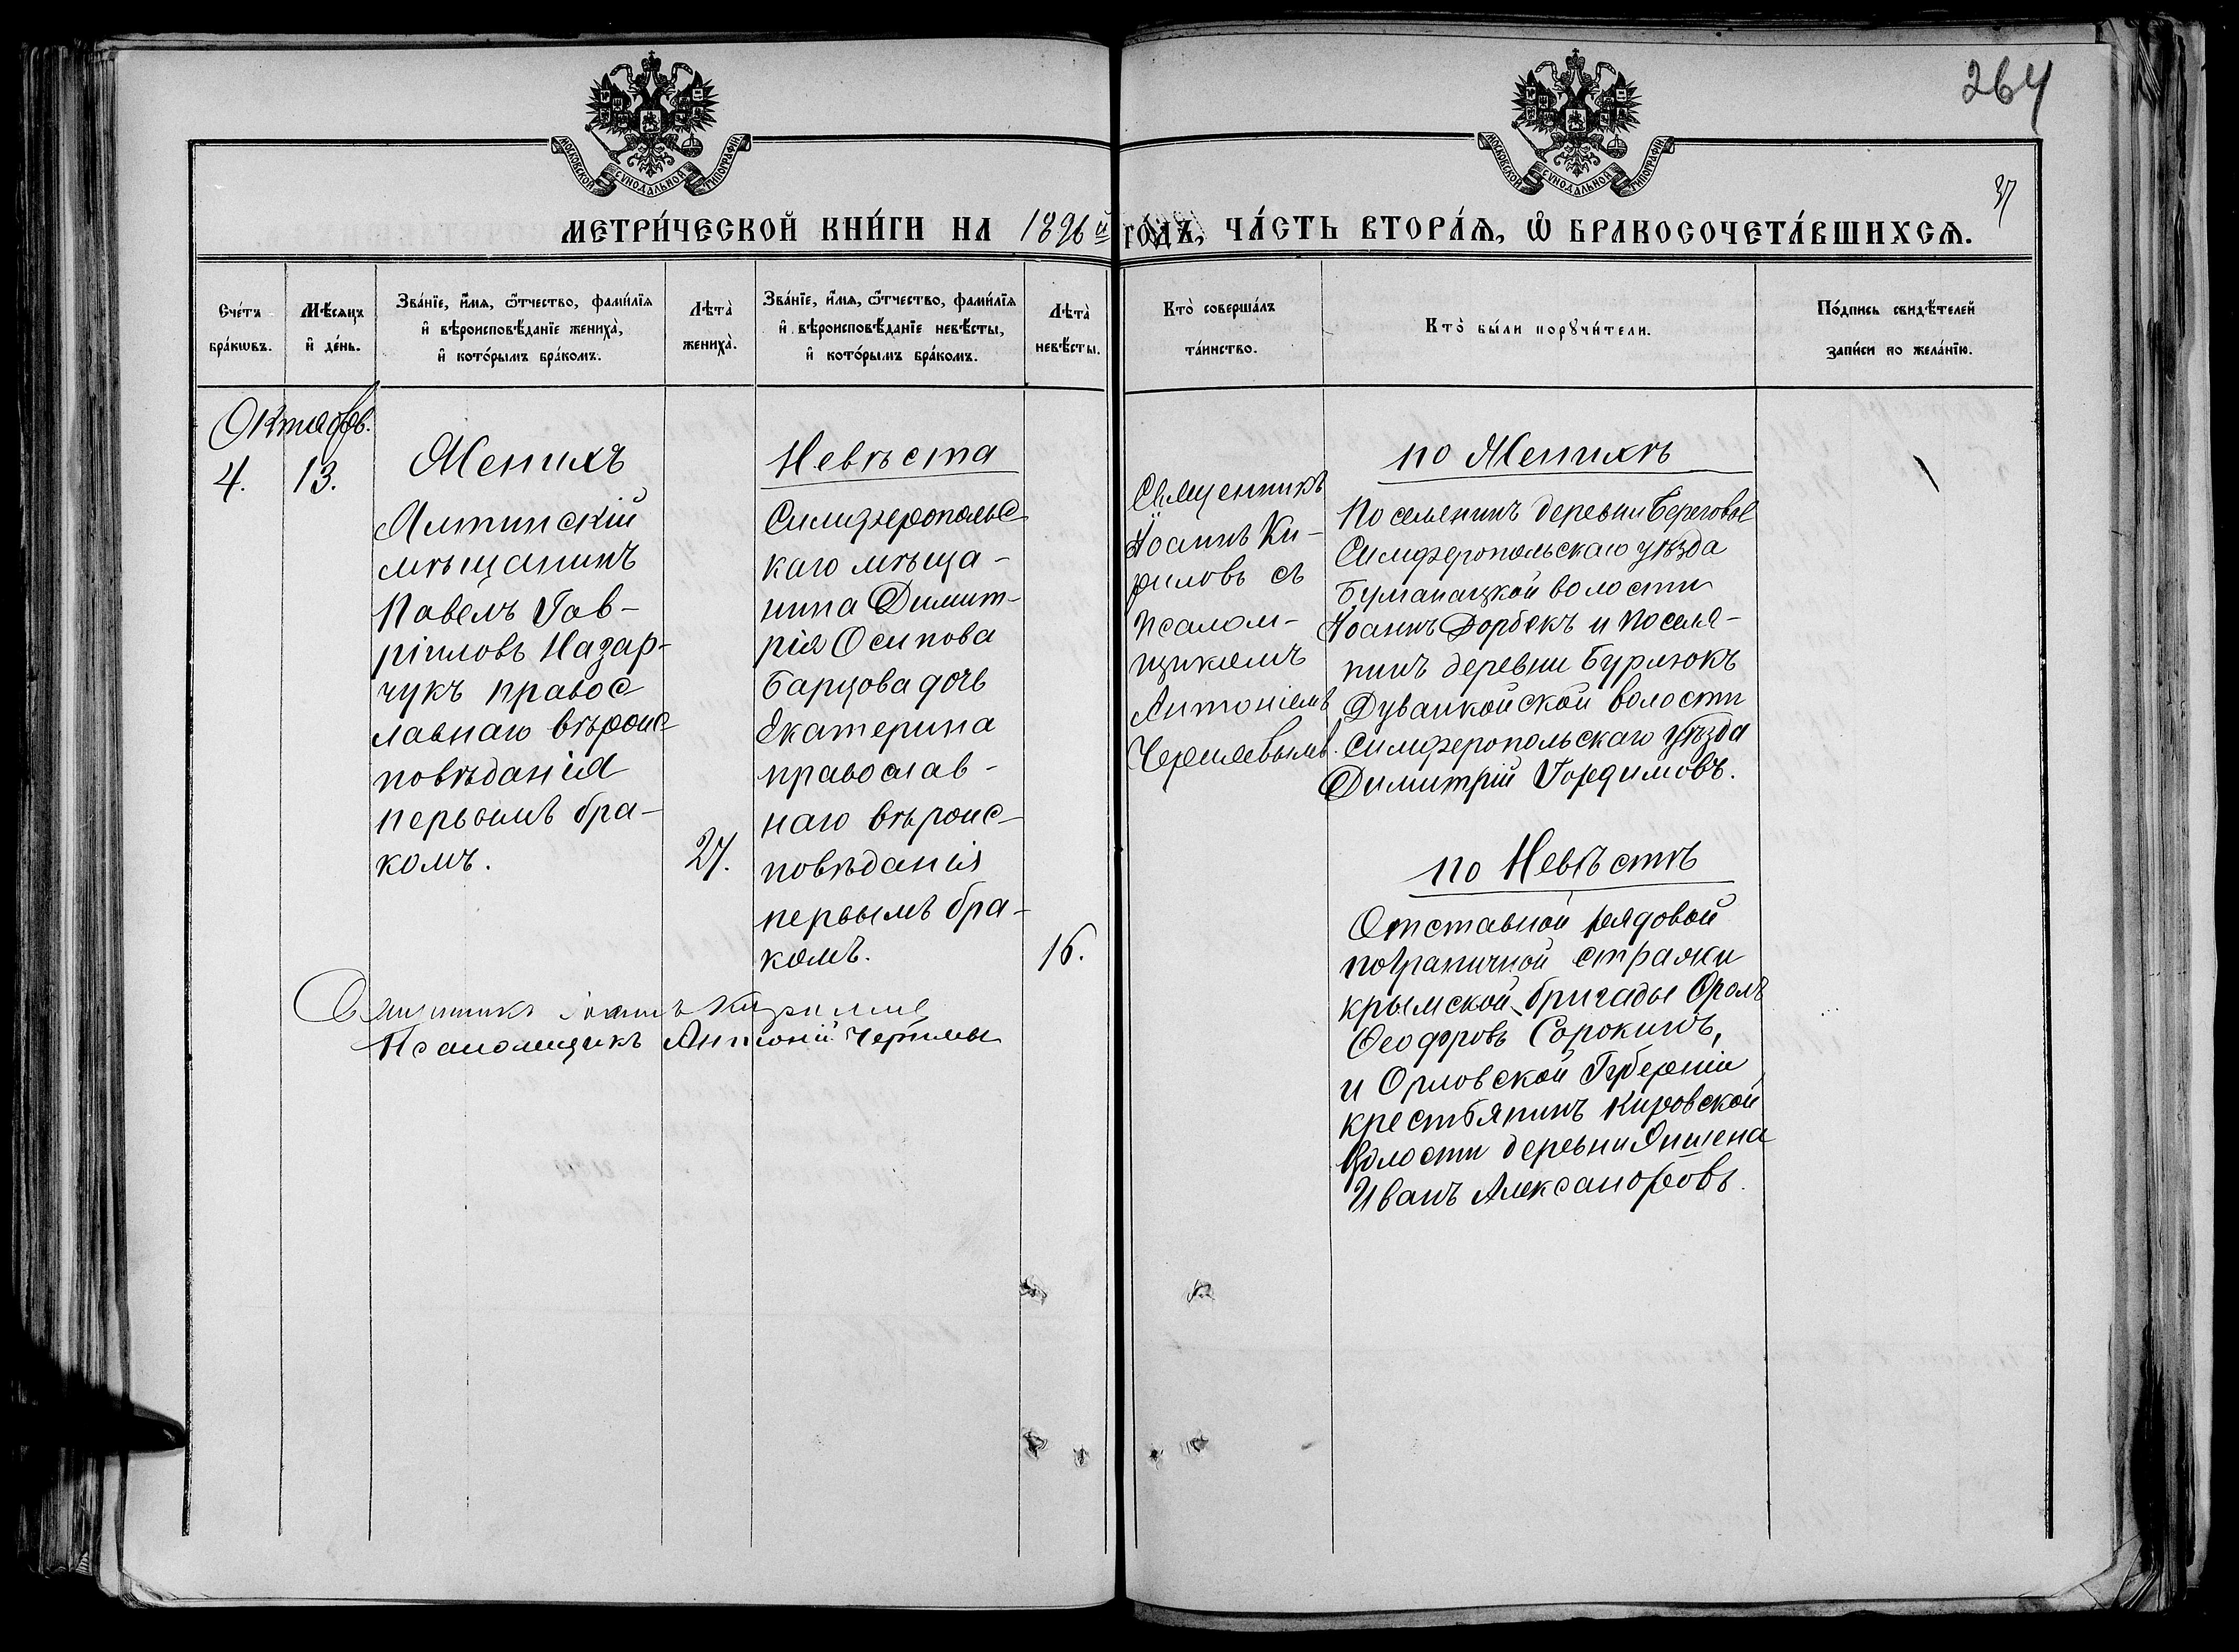 264
37
МОСКОВСКОЙ СѴНОДАЛЬНОЙ ТИПОГРАФІИ
МОСКОВСКОЙ СѴНОДАЛЬНОЙ ТИПОГРАФІИ
МЕТРИ́ЧЕСКОЙ КНИ́ГИ НА 1896 й ГО́ДЪ, ЧА́СТЬ ВТОРА́Ѧ, Ѽ БРАКОСОЧЕТА́ВШИХСѦ.
Сче́тъ
бра́кѡвъ.
Мѣ́сѧцъ
и҆ де́нь.
Зва́нїе, и҆́мѧ, ѻ҆́тчество, фами́лїѧ
и҆ вѣроисповѣ́данїе жениха̀,
и҆ кото́рымъ бра́комъ.
Лѣта̀
жениха̀.
Зва́нїе, и҆́мѧ, ѻ҆́тчество, фами́лїѧ
и҆ вѣроисповѣ́данїе невѣ́сты,
и҆ кото́рымъ бра́комъ.
Лѣта̀
невѣ́сты.
Кто̀ соверша́лъ
та́инство.
Кто̀ бы́ли порꙋчи́тели.
По́дпись свидѣ́телей
за́писи по жела́нїю.
Октябр.
4.
13.
Женихъ
Ялтинскій
мѣщанинъ
Павелъ Гав-
ріиловъ Назар-
чукъ правос
лавнаго вѣроис-
повѣданія
первымъ бра-
комъ.
27.
Невѣста
Симферопольс
каго мѣща-
нина Димит-
рія Осипова
Барцова дочь
Екатерина
православ-
наго вѣроис-
повѣданія
первымъ бра-
комъ.
16.
Священникъ
Іоаннъ Ки-
риловъ съ
псалом-
щикомъ
Антоніемъ
по Женихѣ
Поселянинъ деревни Береговое
Симферопольскаго уѣзда
волости
Іоаннъ Дорбекъ и поселя-
нинъ деревни Бурлюкъ
Дуванкойской волости
Симферопольскаго уѣзда
Димитрій
по Невѣстѣ
Отставной рядовой
пограничной стражи
крымской бригады Фролъ
Феодоровъ Сорокинъ,
и Орловской Губерніи
крестьянинъ Кировской
волости деревни
Иванъ Александровъ.
Священникъ Іоаннъ Кириловъ
Псаломщикъ Антоній